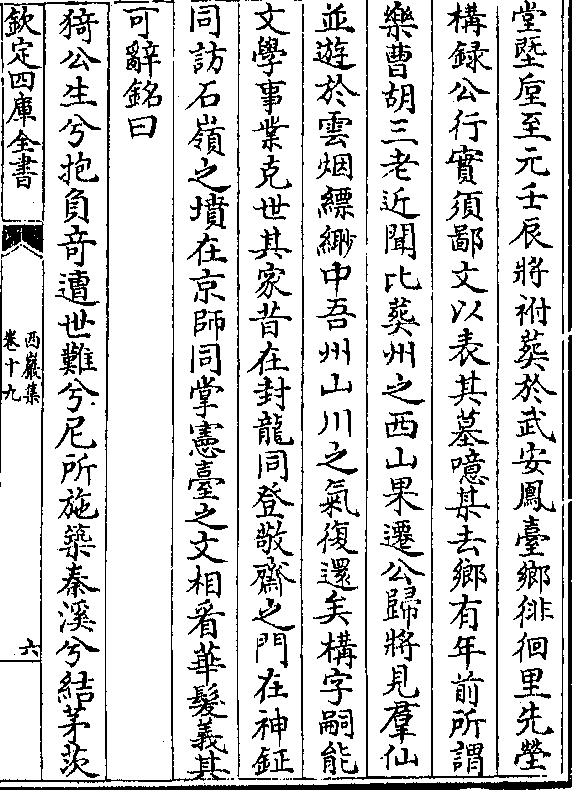 堂塈㕓至元壬辰將祔葬於武安鳳臺鄉徘徊里先塋
構録公行實須鄙文以表其墓噫某去鄉有年前所謂
樂曹胡三老近聞比葬州之西山果遷公歸將見羣仙
並遊於雲烟縹緲中吾州山川之氣復還矣構字嗣能
文學事業克世其家昔在封龍同登敬齋之門在神鉦
同訪石嶺之墳在京師同掌憲臺之文相看華髮義其
可辭銘曰
猗公生兮抱負奇遭世難兮尼所施築秦溪兮結茅茨
欽定四庫全書
西巖集
卷十九
六